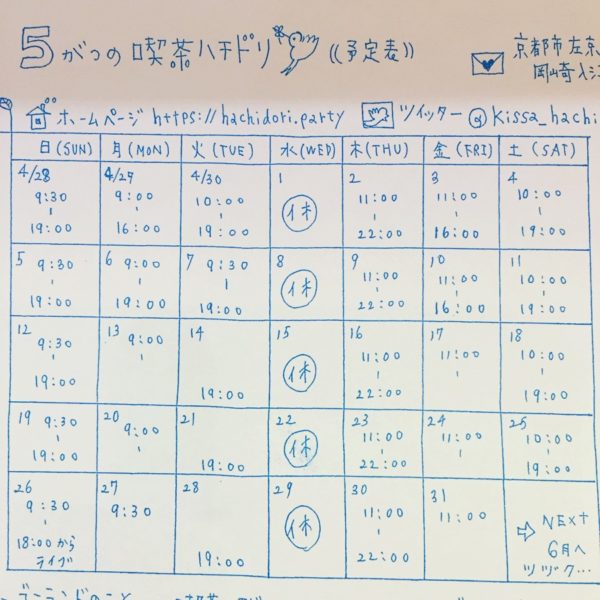 5がつの喫茶ハチドリ((予定表))
京都市左京
岡崎入江
ホームページ https://hachidori.party ツイッター@kissa_hachi
日(SUN) 月(MON) 火(TUE) 水(WED) 木(THU) 金(FRI) 土(SAT)
4/28 4/29 4/30 1 2 3 4
9:30 9:00 10:00 休 11:00 11:00 10:00
19:00 16:00 19:00 22:00 16:00 19:00
5 9:30 6 9:00 7 9:30 8 9 10 11
休 11:00 11:00 10:00
19:00 19:00 19:00 22:00 16:00 19:00
12 13 14 15 16 17 18
9:30 9:00 休 11:00 11:00 10:00
19:00 19:00 22:00 19:00
19 9:30 20 9:00 21 22 23 24 25
休 11:00 11:00 10:00
19:00 19:00 22:00 19:00
26 27 28 29 30 31
9:30 9:30 休 11:00 11:00 ⇨ NEXT
18:00から 6月へ
ライブ 19:00 22:00 ツヅク…